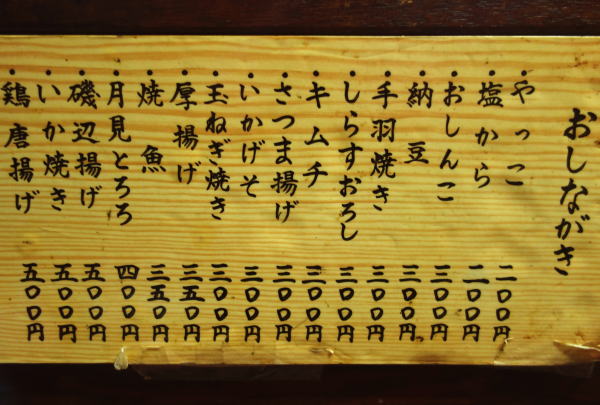 おしながき
・やっこ 二〇〇円
・塩から 二〇〇円
・おしんこ 三〇〇円
・納豆 三〇〇円
・手羽焼き 三〇〇円
・しらすおろし 三〇〇円
・キムチ 三〇〇円
・さつま揚げ 三〇〇円
・いかげそ 三〇〇円
・玉ねぎ焼き 三〇〇円
・厚揚げ 三五〇円
・焼魚 三五〇円
・月見とろろ 四〇〇円
・磯辺揚げ 五〇〇円
・いか焼き 五〇〇円
・鶏唐揚げ 五〇〇円